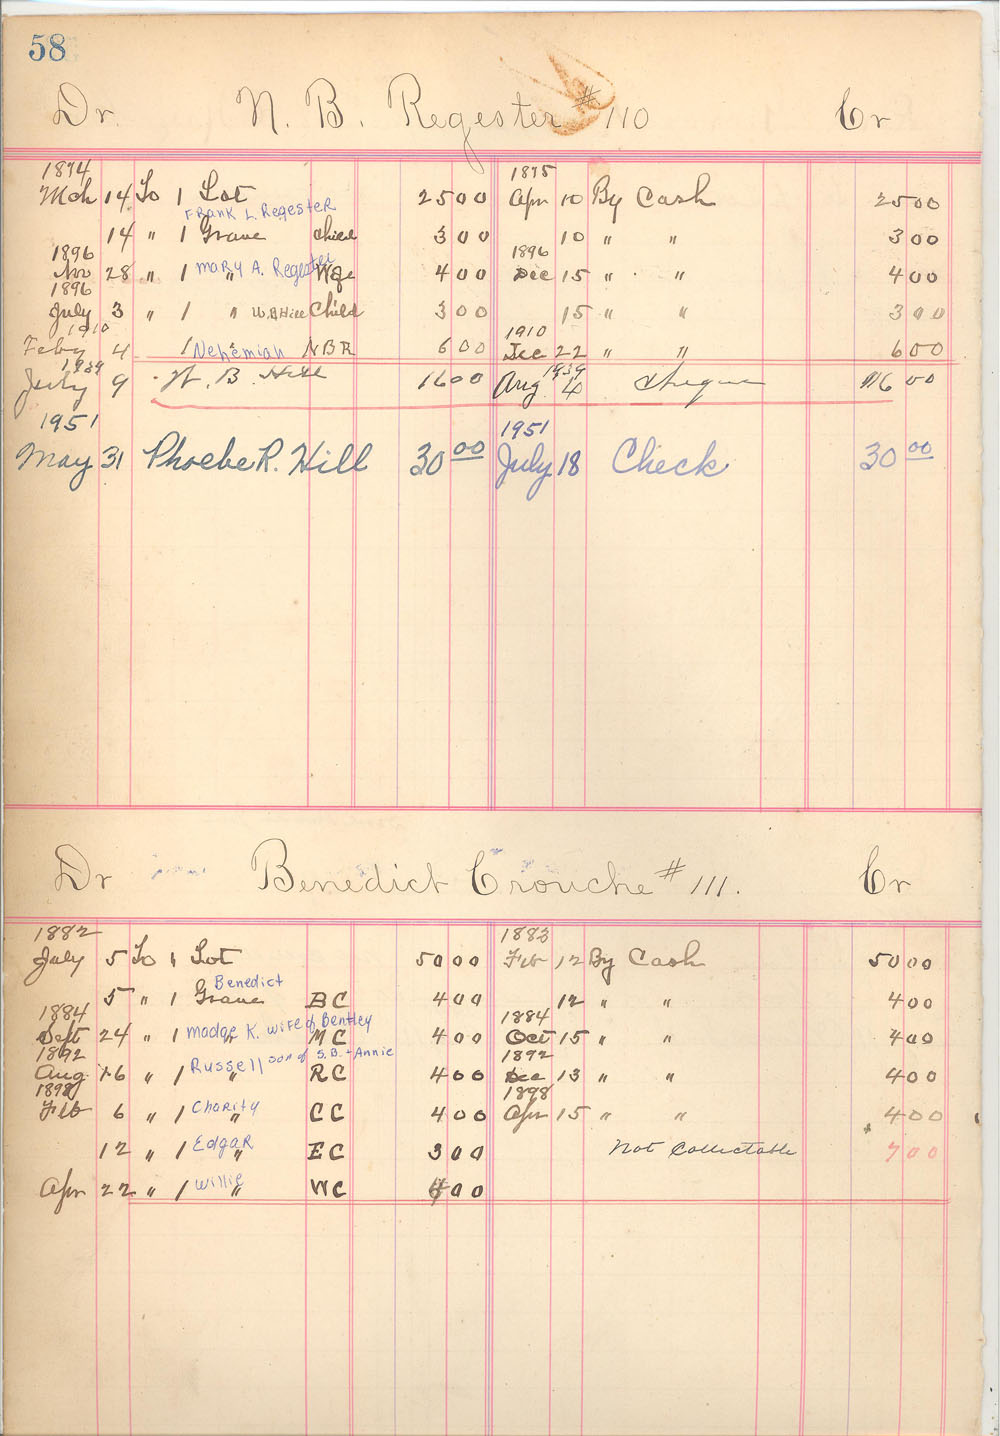 58
Dr. N. B. Regester #110 Cr
1874 1875
Mch 14 To 1 Lot 2500 Apr 10 By Cash 2500
Frank L. Regester
14 " 1 Grave Child 300 10 " " 300
1896 1896
Nov 28 " 1 " Mary A. Regester Wife 400 Dec 15 " " 400
1896
July 3 " 1 " W.B Hill Child 300 15 " " 300
1910 1910
Feby 4 1 " Nehemiah NBR 600 Dec 22 " " 600
1939 1939
July 9 W. B. Hill 1600 Aug 4 Cheque 1600
1951 1951
May 31 Phoebe R. Hill 30 00 July 18 Check 30 00
Dr Benedict Crouche #111. Cr
1882 1883
July 5 To 1 Lot 5000 Feb 12 By Cash 5000
Benedict
5 " 1 Grave BC 400 12 " " 400
1884 1884
Sept 24 " 1 " Madge K. wife of Bentley MC 400 Oct 15 " " 400
1892 1892
Aug 16 " 1 " Russell son of S.B. + Annie RC 400 Dec 13 " " 400
1898 1898
Feb 6 " 1 Charity CC 400 Apr 15 " " 400
12 " 1 " Edgar EC 300 Not Collectable 700
Apr 22 " 1 " Willie WC 400